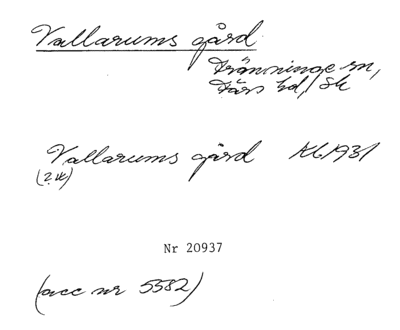 Vallarums gård
Tränninge sn,
Färs hd, Sk
Vallarums gård AL 1931
(2 st)
Nr 20937
(acc nr 5582)